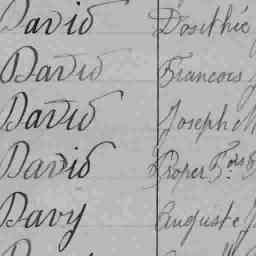 David Dosithé
David Francois
David Joseph M
David Prosper Fois
Davy Auguste J